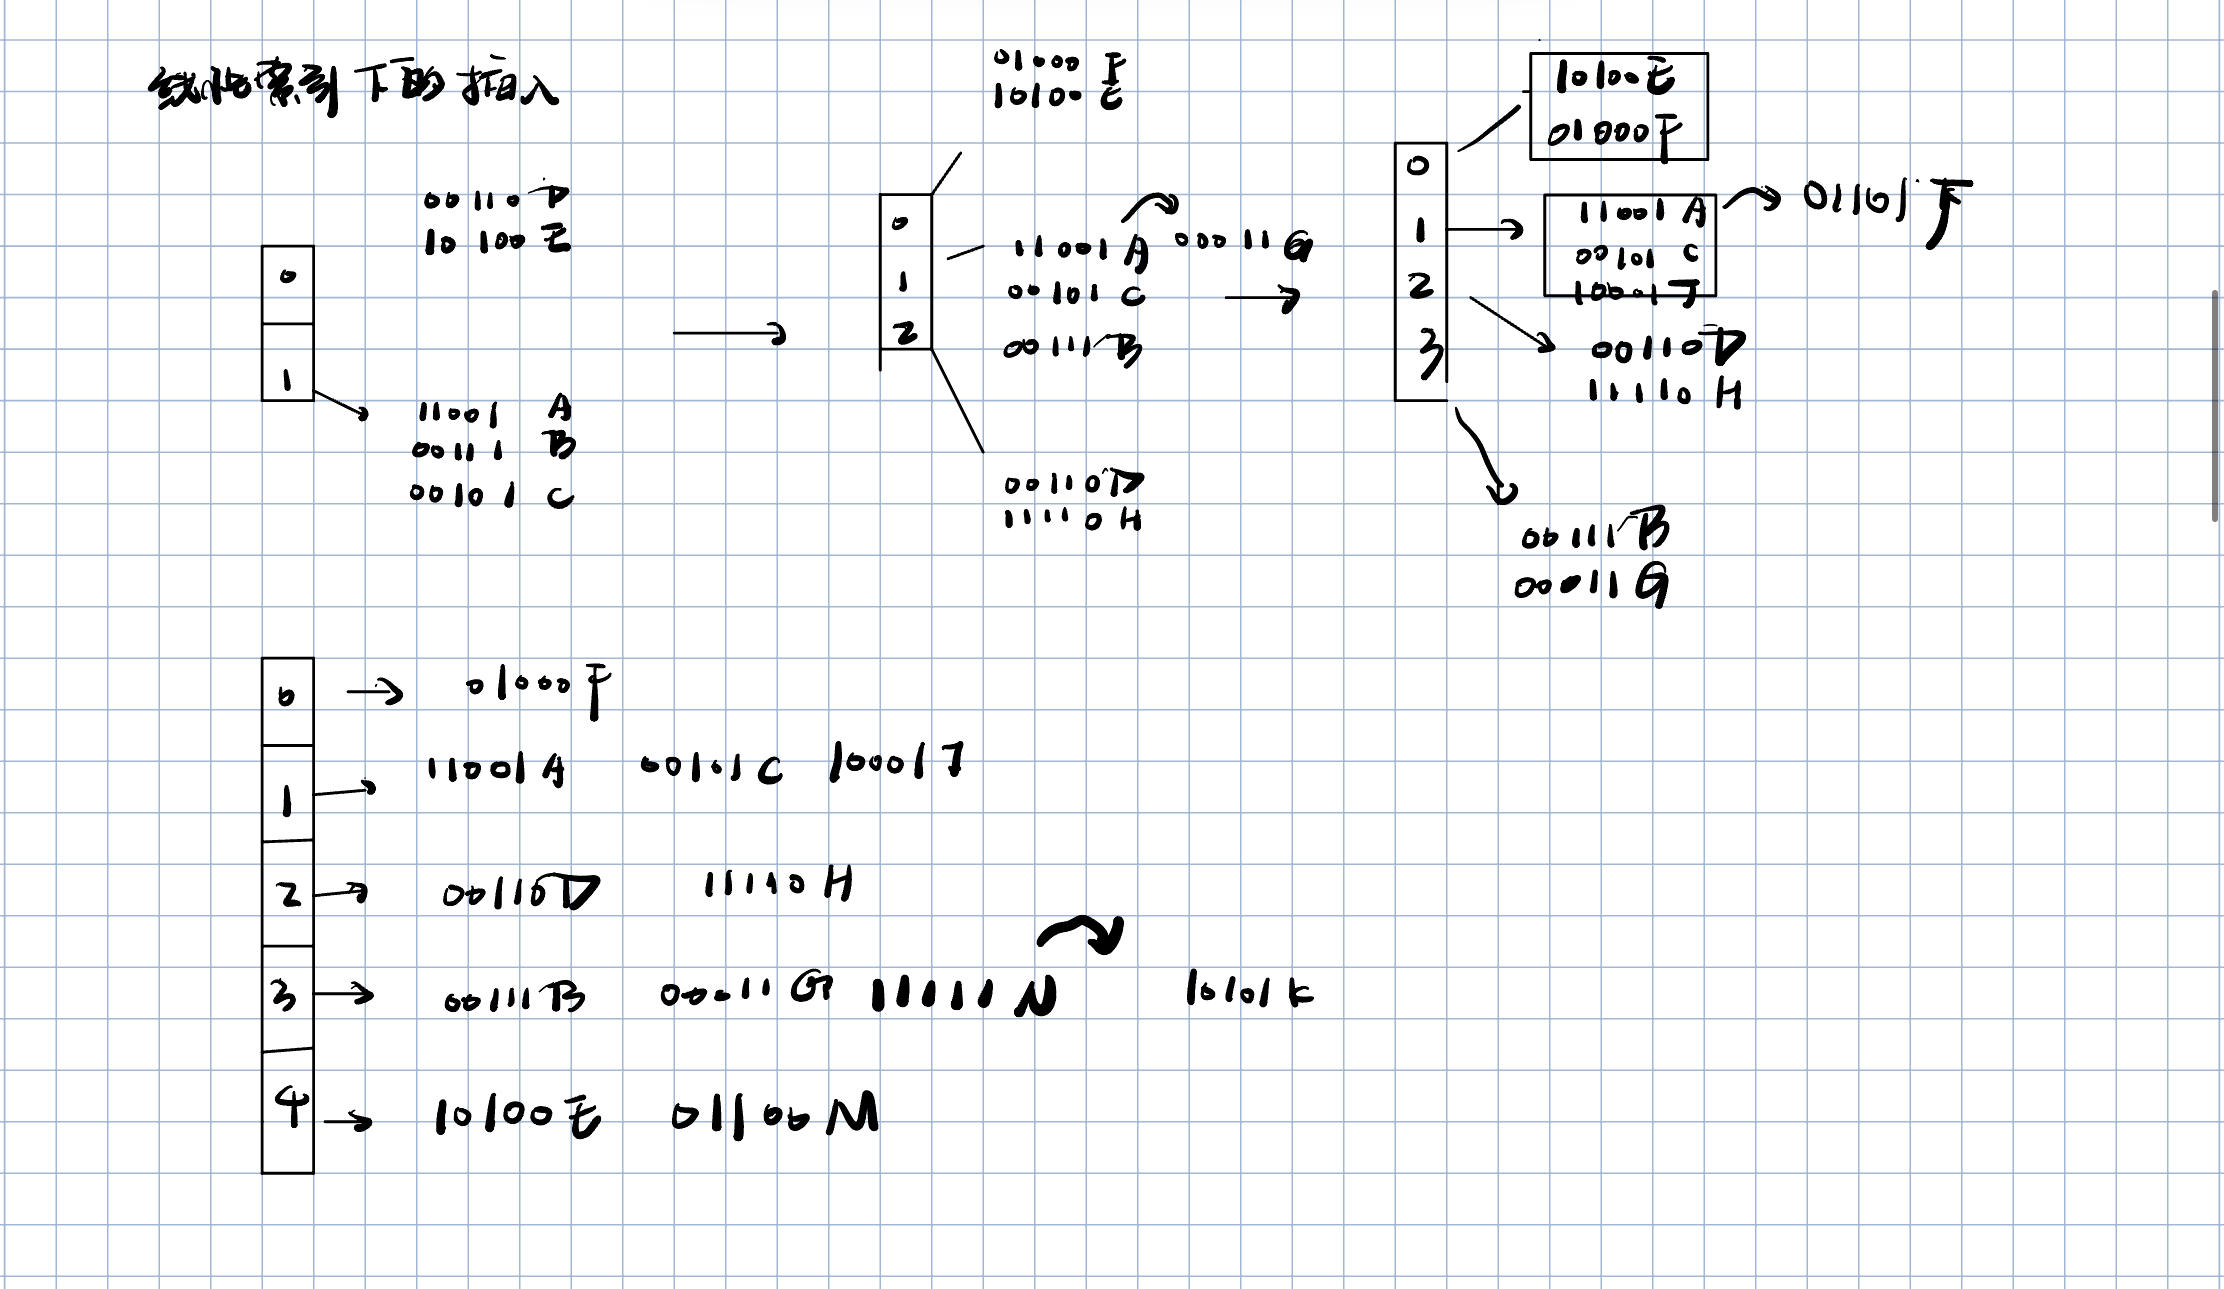 线性索引下的插入
0
1
00110 D
10100 E
11001 A
00111 B
00101 C
0
1
2
01000 F
10100 E
11001 A 00011 G
00101 C
00111 B
00110 D
11110 H
0
1
2
3
10100 E
01000 F
11001 A 01101 J
00101 C
10001 J
00110 D
11110 H
00111 B
00011 G
0 01000 F
1 11001 A 00101 C 10001 J
2 00110 D 11110 H
3 00111 B 00011 G 11111 N 10101 K
4 10100 E 01100 M